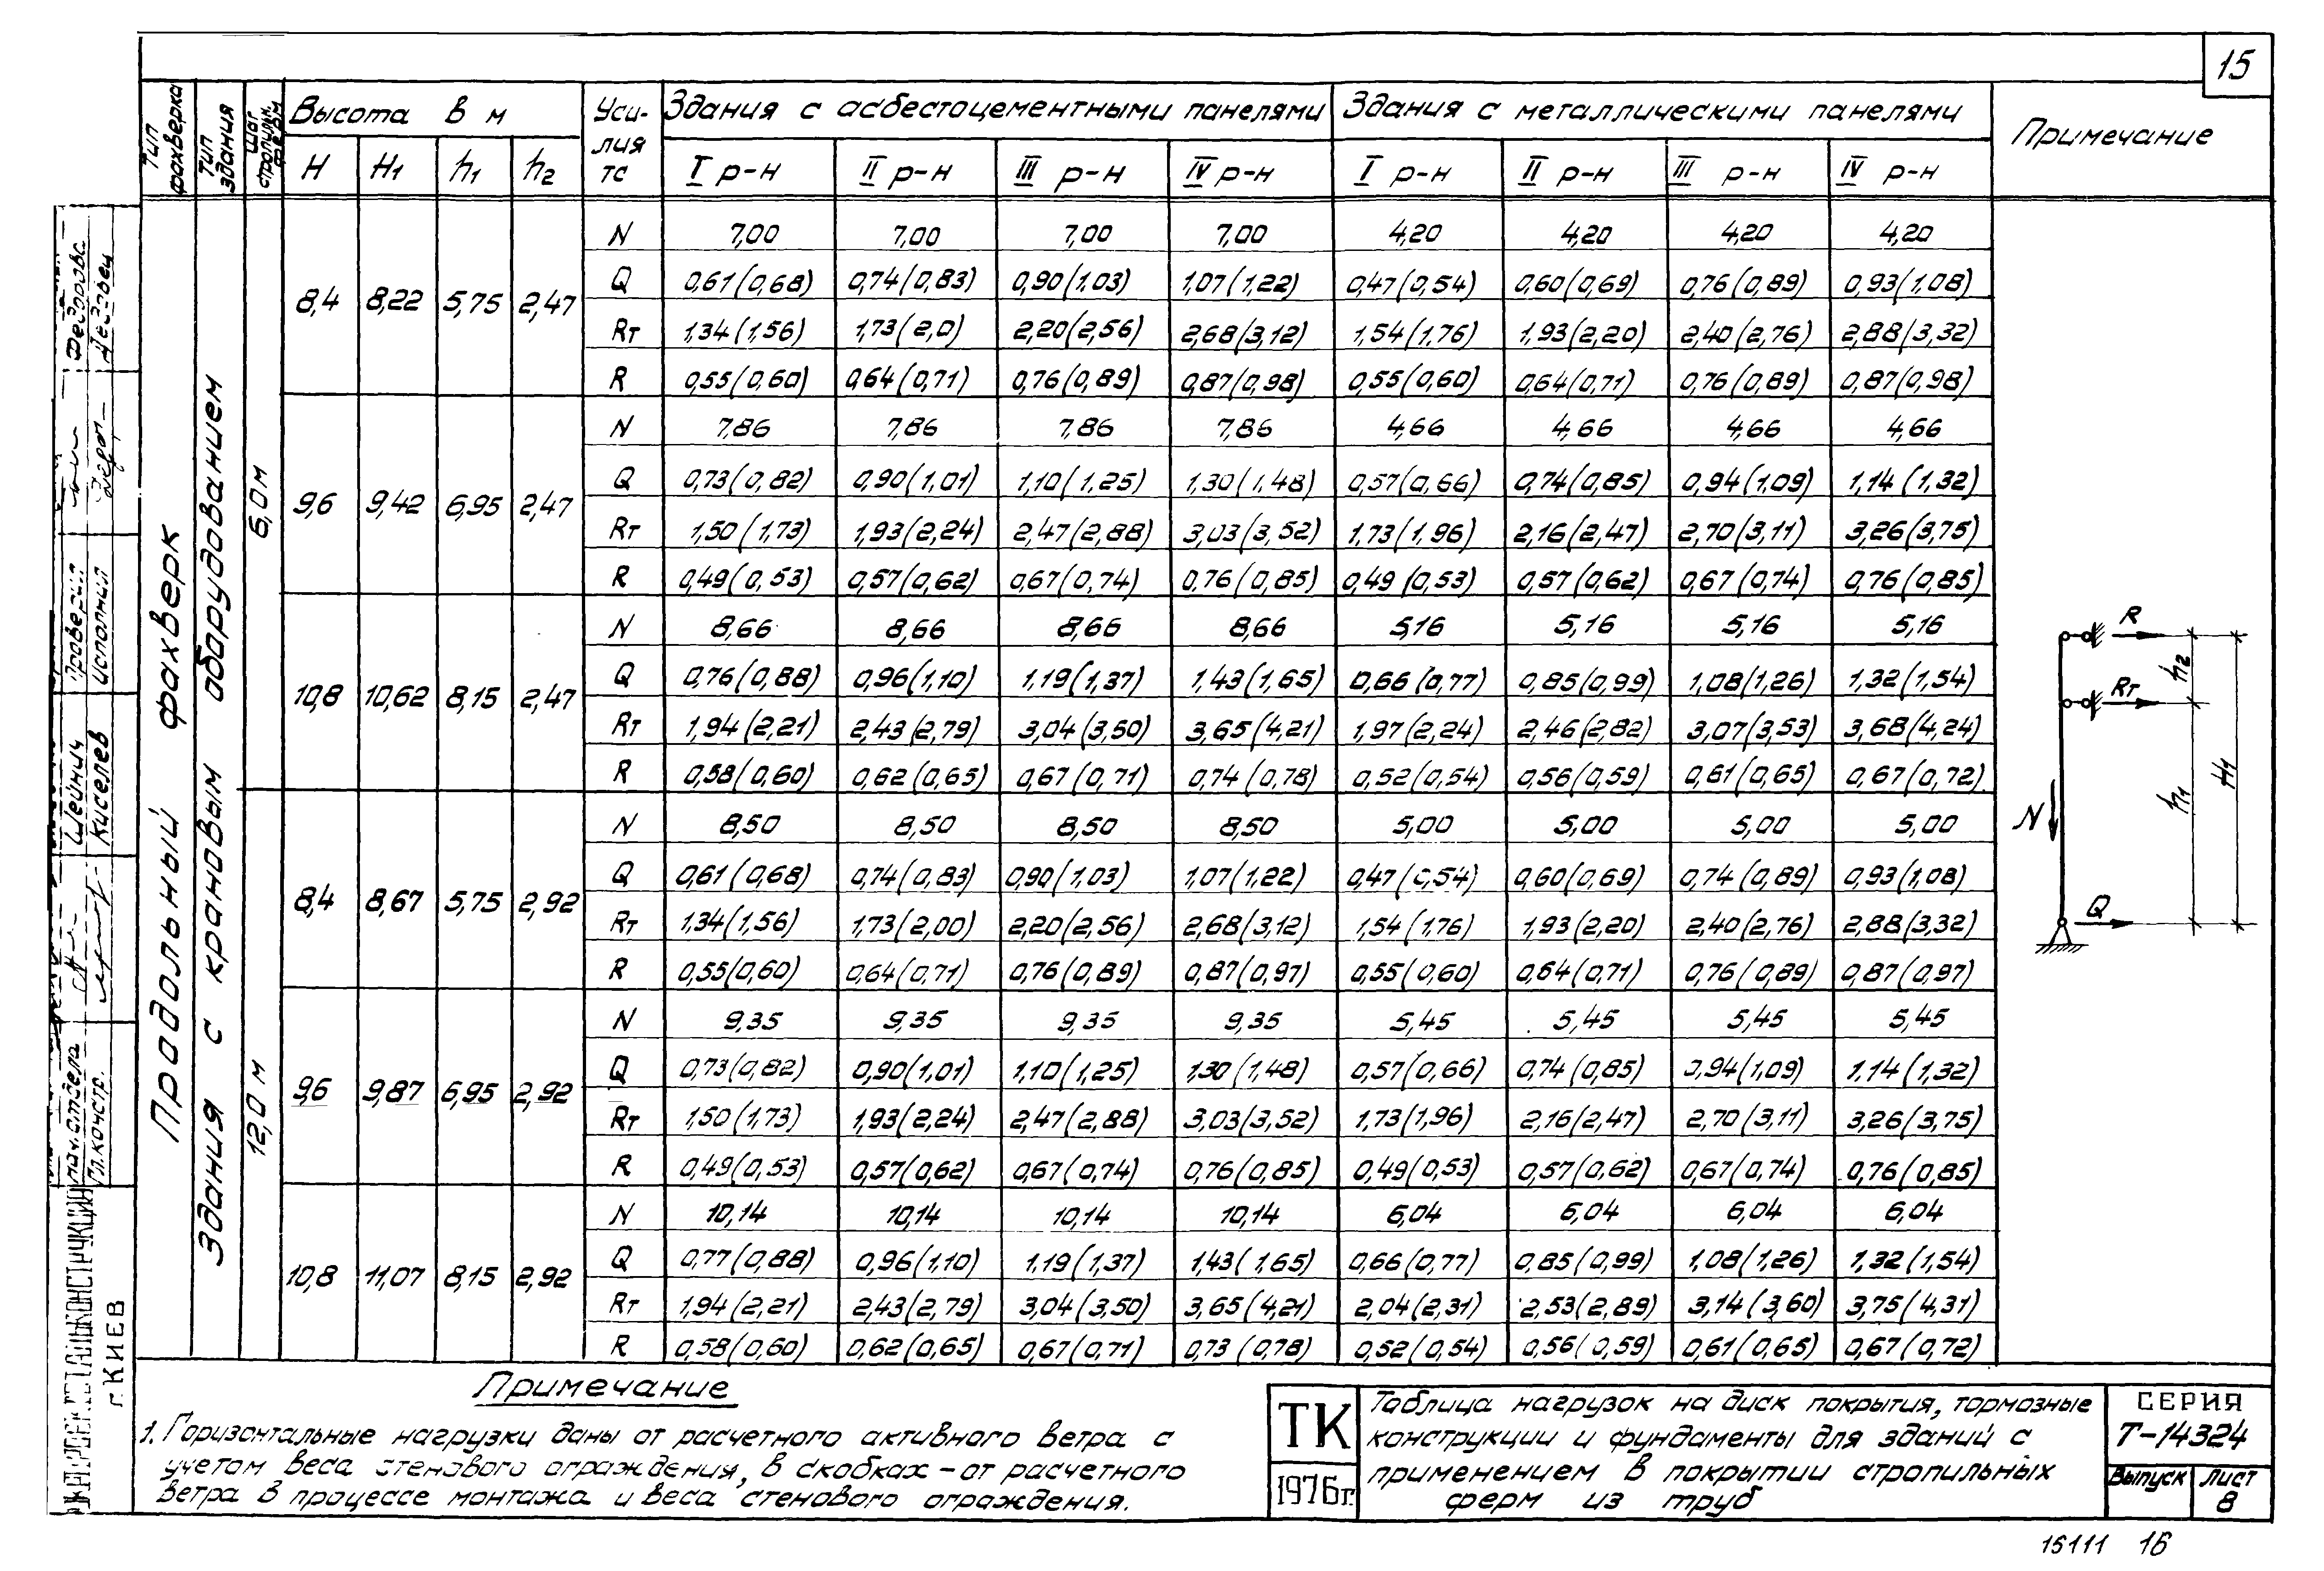 15
Тип фахверка
Тип здания
Шаг стропильн. ферм
Высота в м
Уси-
лия
тс
Здания с асбестоцементными панелями
Здания с металлическими панелями
Примечание
H H1 h1 h2
I р-н II р-н III р-н IV р-н I р-н II р-н III р-н IV р-н
Продольный фахверк
Здания с крановым оборудованием
6,0 м
8,4 8,22 5,75 2,47
N 7,00 7,00 7,00 7,00 4,20 4,20 4,20 4,20
Q 0,61(0,68) 0,74(0,83) 0,90(1,03) 1,07(1,22) 0,47(0,54) 0,60(0,69) 0,76(0,89) 0,93(1,08)
Rт 1,34(1,56) 1,73(2,0) 2,20(2,56) 2,68(3,12) 1,54(1,76) 1,93(2,20) 2,40(2,76) 2,88(3,32)
R 0,55(0,60) 0,64(0,71) 0,76(0,89) 0,87(0,98) 0,55(0,60) 0,64(0,71) 0,76(0,89) 0,87(0,98)
9,6 9,42 6,95 2,47
N 7,86 7,86 7,86 7,86 4,66 4,66 4,66 4,66
Q 0,73(0,82) 0,90(1,01) 1,10(1,25) 1,30(1,48) 0,57(0,66) 0,74(0,85) 0,94(1,09) 1,14(1,32)
Rт 1,50(1,73) 1,93(2,24) 2,47(2,88) 3,03(3,52) 1,73(1,96) 2,16(2,47) 2,70(3,11) 3,26(3,75)
R 0,49(0,53) 0,57(0,62) 0,67(0,74) 0,76(0,85) 0,49(0,53) 0,57(0,62) 0,67(0,74) 0,76(0,85)
10,8 10,62 8,15 2,47
N 8,66 8,66 8,66 8,66 5,16 5,16 5,16 5,16
Q 0,76(0,88) 0,96(1,10) 1,19(1,37) 1,43(1,65) 0,66(0,77) 0,85(0,99) 1,08(1,26) 1,32(1,54)
Rт 1,94(2,21) 2,43(2,79) 3,04(3,50) 3,65(4,21) 1,97(2,24) 2,46(2,82) 3,07(3,53) 3,68(4,24)
R 0,58(0,60) 0,62(0,65) 0,67(0,71) 0,74(0,78) 0,52(0,54) 0,56(0,59) 0,61(0,65) 0,67(0,72)
12,0 м
8,4 8,67 5,75 2,92
N 8,50 8,50 8,50 8,50 5,00 5,00 5,00 5,00
Q 0,61(0,68) 0,74(0,83) 0,90(1,03) 1,07(1,22) 0,47(0,54) 0,60(0,69) 0,74(0,89) 0,93(1,08)
Rт 1,34(1,56) 1,73(2,00) 2,20(2,56) 2,68(3,12) 1,54(1,76) 1,93(2,20) 2,40(2,76) 2,88(3,32)
R 0,55(0,60) 0,64(0,71) 0,76(0,89) 0,87(0,97) 0,55(0,60) 0,64(0,71) 0,76(0,89) 0,87(0,97)
9,6 9,87 6,95 2,92
N 9,35 9,35 9,35 9,35 5,45 5,45 5,45 5,45
Q 0,73(0,82) 0,90(1,01) 1,10(1,25) 1,30(1,48) 0,57(0,66) 0,74(0,85) 0,94(1,09) 1,14(1,32)
Rт 1,50(1,73) 1,93(2,24) 2,47(2,88) 3,03(3,52) 1,73(1,96) 2,16(2,47) 2,70(3,11) 3,26(3,75)
R 0,49(0,53) 0,57(0,62) 0,67(0,74) 0,76(0,85) 0,49(0,53) 0,57(0,62) 0,67(0,74) 0,76(0,85)
10,8 11,07 8,15 2,92
N 10,14 10,14 10,14 10,14 6,04 6,04 6,04 6,04
Q 0,77(0,88) 0,96(1,10) 1,19(1,37) 1,43(1,65) 0,66(0,77) 0,85(0,99) 1,08(1,26) 1,32(1,54)
Rт 1,94(2,21) 2,43(2,79) 3,04(3,50) 3,65(4,21) 2,04(2,31) 2,53(2,89) 3,14(3,60) 3,75(4,31)
R 0,58(0,60) 0,62(0,65) 0,67(0,71) 0,73(0,78) 0,52(0,54) 0,56(0,59) 0,61(0,65) 0,67(0,72)
R
Rт
h2
h1
H1
N
Q
Проверил
Исполнил
Шейнич
Киселев
Нач.отдела
Гл.констр.
г.КИЕВ
Примечание
1. Горизонтальные нагрузки даны от расчетного активного ветра с
учетом веса стенового ограждения, в скобках – от расчетного
ветра в процессе монтажа и веса стенового ограждения.
ТК
1976г.
Таблица нагрузок на диск покрытия, тормозные
конструкции и фундаменты для зданий с
применением в покрытии стропильных
ферм из труб
СЕРИЯ
Т-14324
Выпуск
Лист
8
15111 16